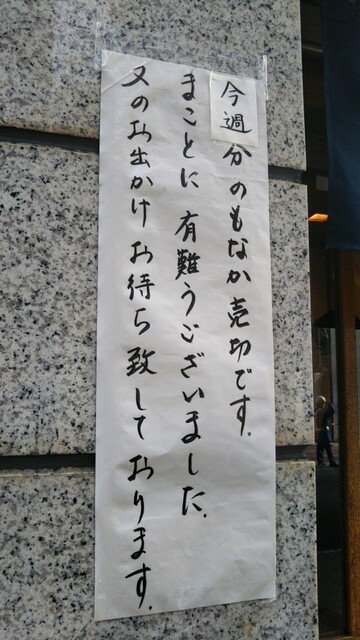 今週分のもなか売切です.
まことに有難うございました.
又のお出かけお待ち致しております.